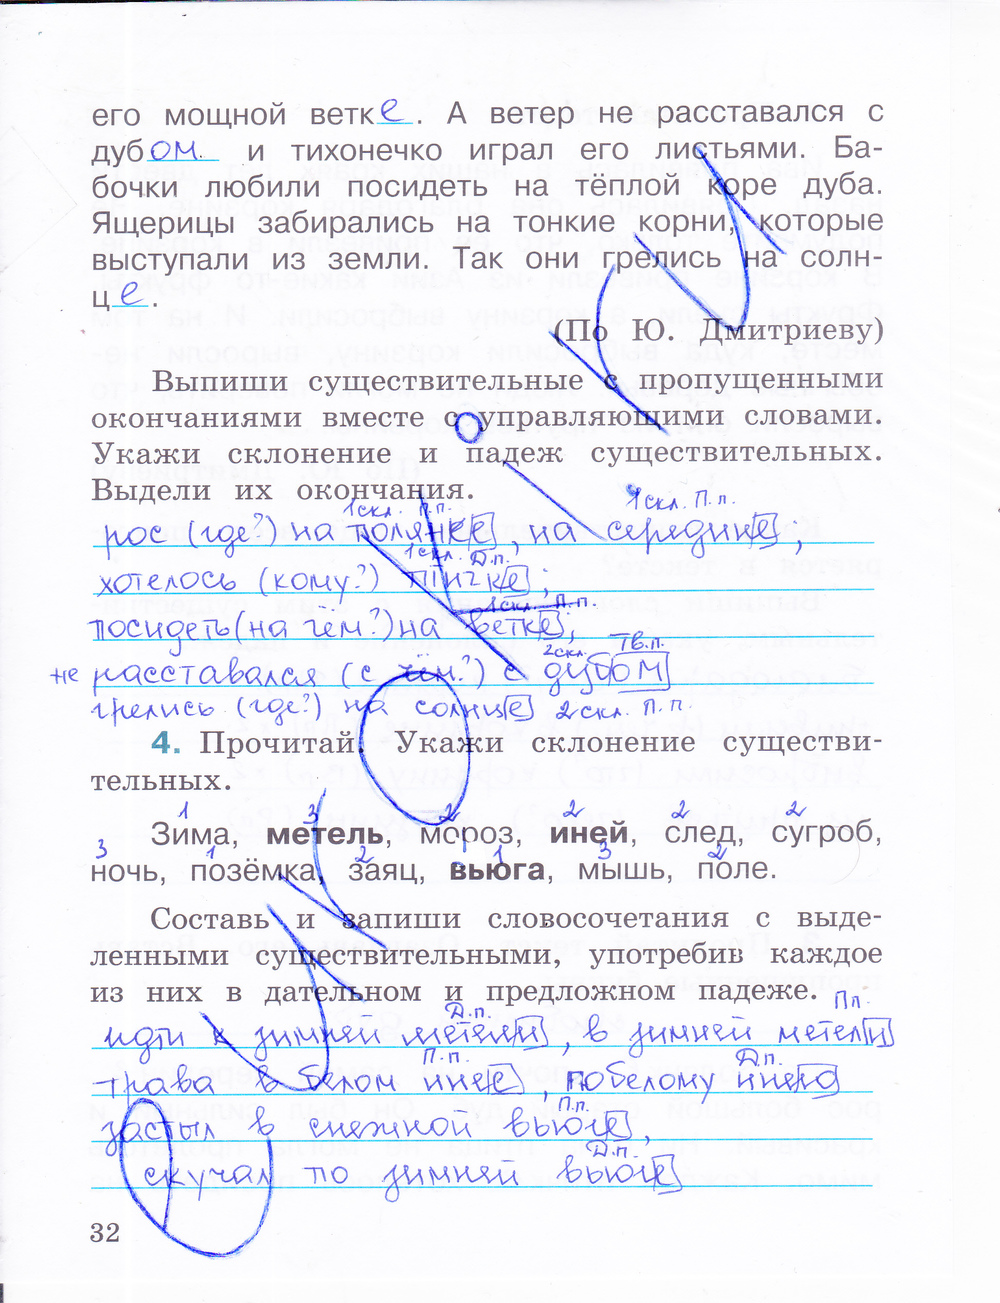 его мощной ветке. А ветер не расставался с
дубом и тихонечко играл его листьями. Ба-
бочки любили посидеть на тёплой коре дуба.
Ящерицы забирались на тонкие корни, которые
выступали из земли. Так они грелись на солн-
це.
(По Ю. Дмитриеву)
Выпиши существительные с пропущенными
окончаниями вместе с управляющими словами.
Укажи склонение и падеж существительных.
Выдели их окончания.
1скл. П.п. 1скл. П.п.
рос (где?) на полянке, на середине,
1скл. Д.п.
хотелось (кому?) птичке,
1скл. П.п.
посидеть (на чём?) на ветке,
2скл. Тв.п.
не расставался (с чем?) с дубом
грелись (где?) на солнце 2скл. П.п.
4. Прочитай. Укажи склонение существи-
тельных.
1 3 2 2 2 2
Зима, метель, мороз, иней, след, сугроб,
3 1 2 1 3 2
ночь, позёмка, заяц, вьюга, мышь, поле.
Составь и запиши словосочетания с выде-
ленными существительными, употребив каждое
из них в дательном и предложном падеже.
Д.п. Пп.
идти к зимней метели, в зимней метели
П.п. Д.п.
трава в белом инее, по белому инею
П.п.
застыл в снежной вьюге,
Д.п.
скучал по зимней вьюге
32